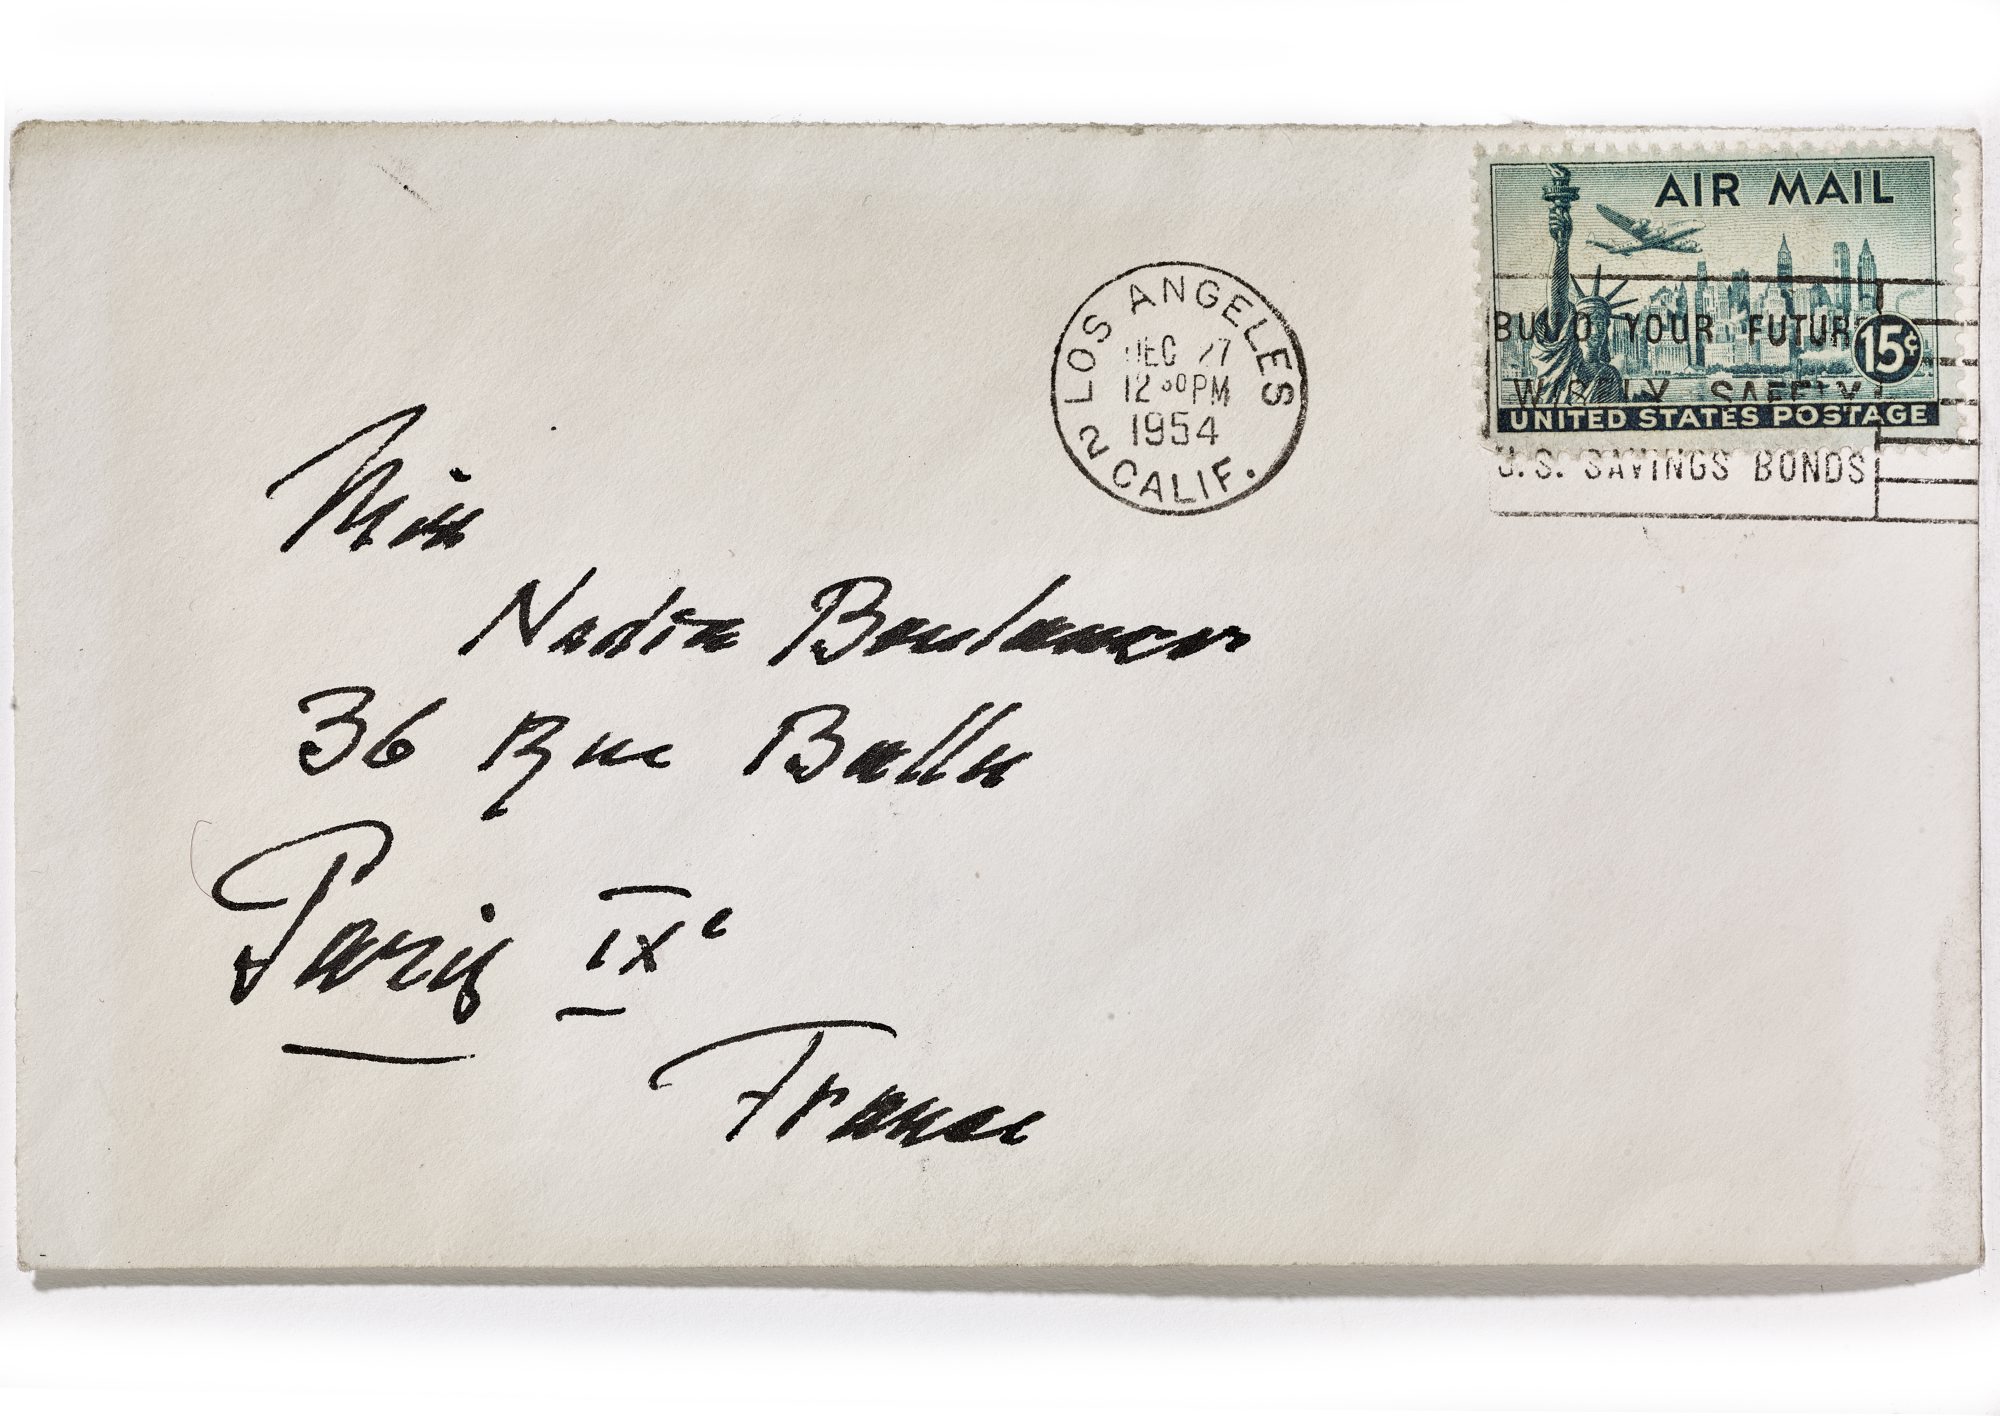 AIR MAIL
15¢
UNITED STATES POSTAGE
2 LOS ANGELES CALIF.
DEC 27
12 30 PM
1954
BUILD YOUR FUTURE
WISELY SAFELY
U.S. SAVINGS BONDS
Miss
Nadia Boulanger
36 Rue Ballu
Paris IXe
France